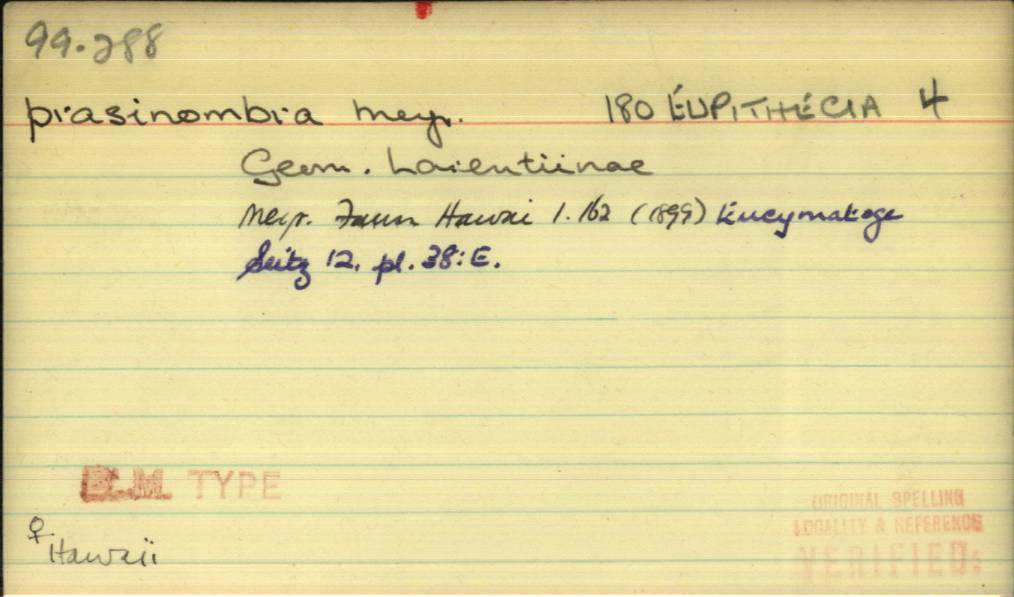 99.288
prasinombra Meyr. 180 EUPITHECIA 4
Geom. Larentiinae
Meyr. Faun Hawaii 1.162 (1899) Eucymatoge
Seitz 12. pl. 38: E.
B.M. TYPE
♀
Hawaii
ORIGINAL SPELLING
LOCALITY & REFERENCE
VERIFIED.